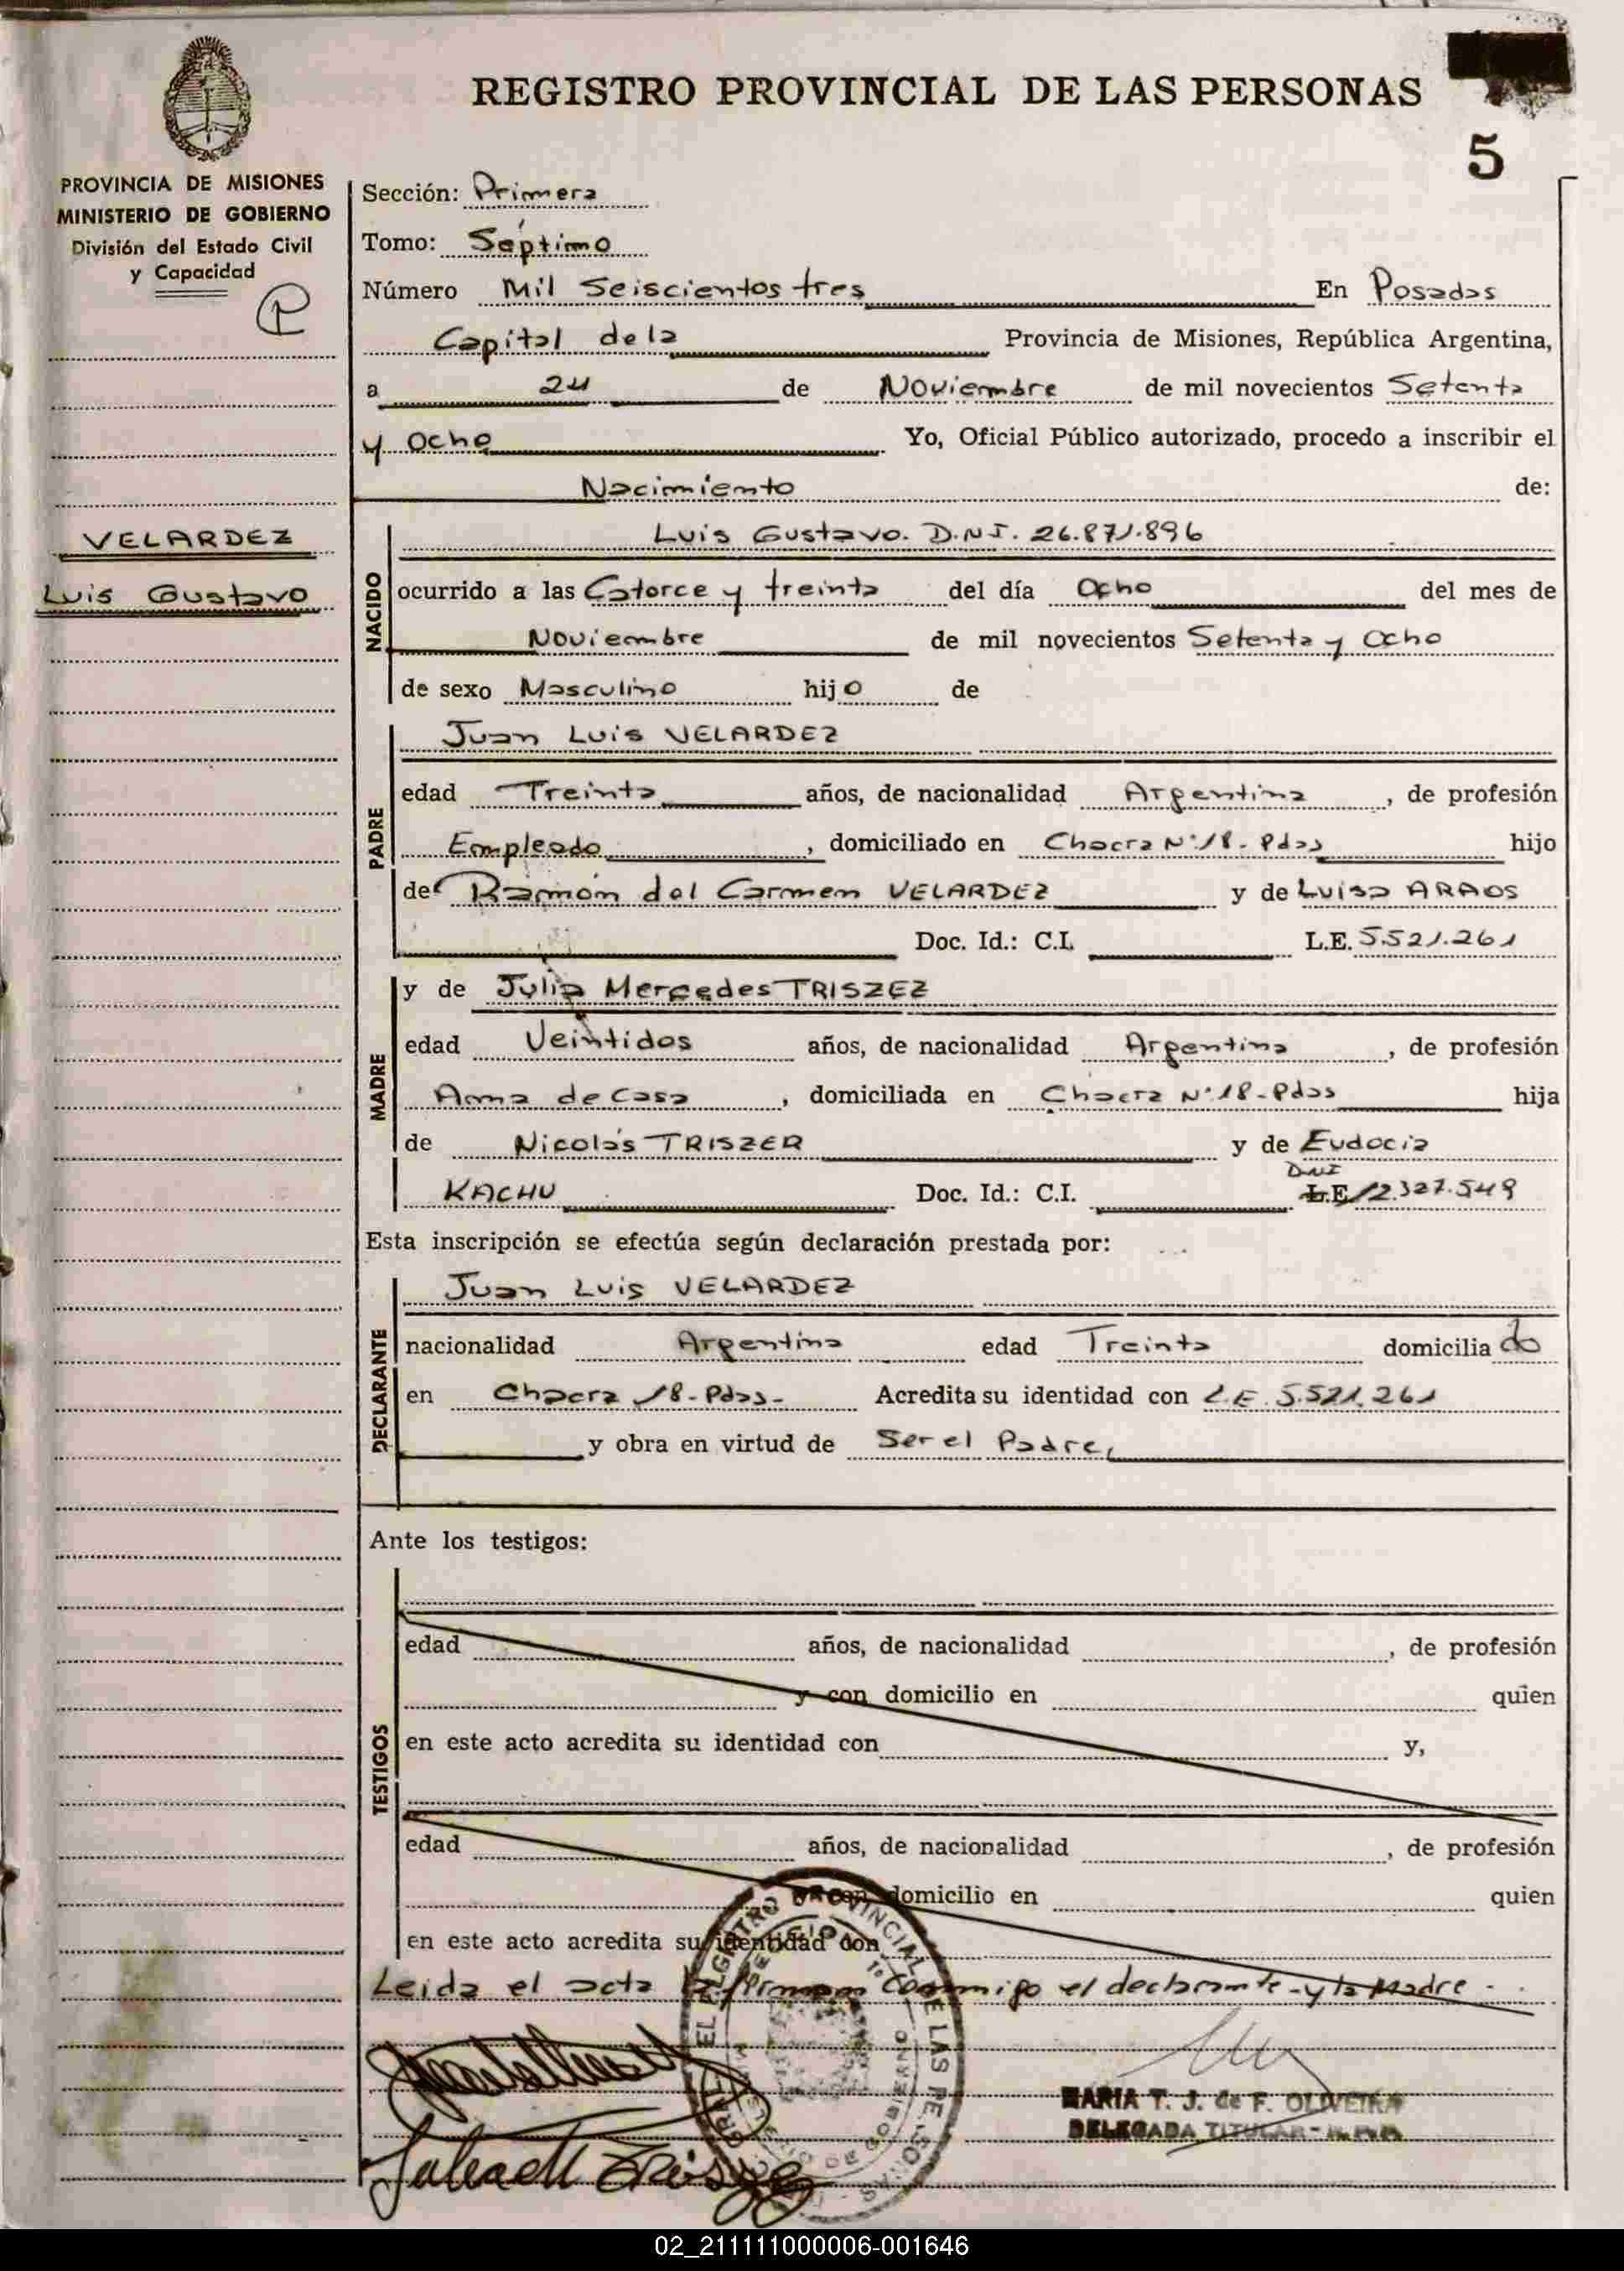 REGISTRO PROVINCIAL DE LAS PERSONAS
5
PROVINCIA DE MISIONES
MINISTERIO DE GOBIERNO
División del Estado Civil
y Capacidad
P
VELARDEZ
Luis Gustavo
Sección: Primera
Tomo: Séptimo
Número Mil Seiscientos tres En Posadas
Capital de la Provincia de Misiones, República Argentina,
a 24 de Noviembre de mil novecientos Setenta
y ocho Yo, Oficial Público autorizado, procedo a inscribir el
Nacimiento de:
NACIDO
Luis Gustavo. D.N.I. 26.871.896
ocurrido a las Catorce y treinta del día Ocho del mes de
Noviembre de mil novecientos Setenta y Ocho
de sexo Masculino hijo de
PADRE
Juan Luis VELARDEZ
edad Treinta años, de nacionalidad Argentina, de profesión
Empleado, domiciliado en Chacra N° 18 - Pdas hijo
de Ramón del Carmen VELARDEZ y de Luisa ARAOS
Doc. Id.: C.I. L.E. 5.521.261
MADRE
y de Julia Mercedes TRISZEZ
edad Veintidos años, de nacionalidad Argentina, de profesión
Ama de Casa, domiciliada en Chacra N° 18 - Pdas hija
de Nicolás TRISZER y de Eudocia
KACHU Doc. Id.: C.I. L.E. DNI 12.327.549
Esta inscripción se efectúa según declaración prestada por:
DECLARANTE
Juan Luis VELARDEZ
nacionalidad Argentina edad Treinta domiciliado
en Chacra 18 - Pdas - Acredita su identidad con L.E. 5.521.261
y obra en virtud de Ser el Padre,
Ante los testigos:
TESTIGOS
edad años, de nacionalidad , de profesión
y con domicilio en quien
en este acto acredita su identidad con y,
edad años, de nacionalidad , de profesión
y con domicilio en quien
en este acto acredita su identidad con
Leida el acta la firman conmigo el declarante - y la Madre -
MARIA T. J. de F. OLIVEIRA
DELEGADA TITULAR -
02_211111000006-001646